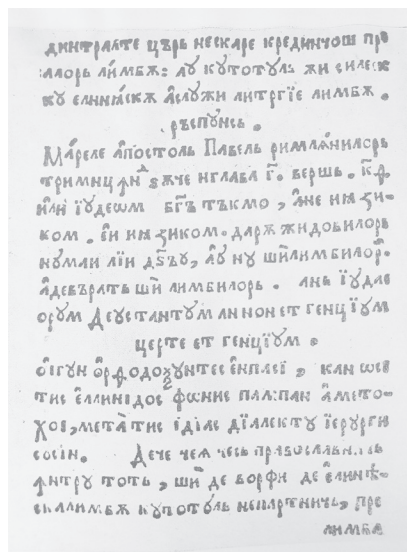 динтралте църь нескаре крединчош про
алорь лимбѫ: ау кутотуль жи силеск
ку елинѣскѫ аслужи литргїе лимбѫ.
ръспунсь.
Мареле апостоль Павель римлѣнилорь
тримицѫнⷣ ѕѫче нглава г҃. вершь. к҃ѳ,
или їудеѡм бг҃ь тъкмо, ане ни ѕи-
ком. еи ни ѕиком. дарѫ жидовилорь
нумаи лїи дмн҃ъу, ау ну ши лимбилорⷬ.
адевърать ши лимбилорь. ань їудае
орум Деусетантум аннон ет генцїум
церте ет генцїум.
оїгун орѳодоѯунтес енплеї, кан ѡсь
тис еллинїдос фѡние пал:пан амето-
хои, мета тис идїас дїалекту їерурги
сосін. Дече чеѧ чесь православникъ
ѫнтру тоть, ши де ворфи де елинѣ-
скалимбѫ купотуль непартничь, пре
лимба